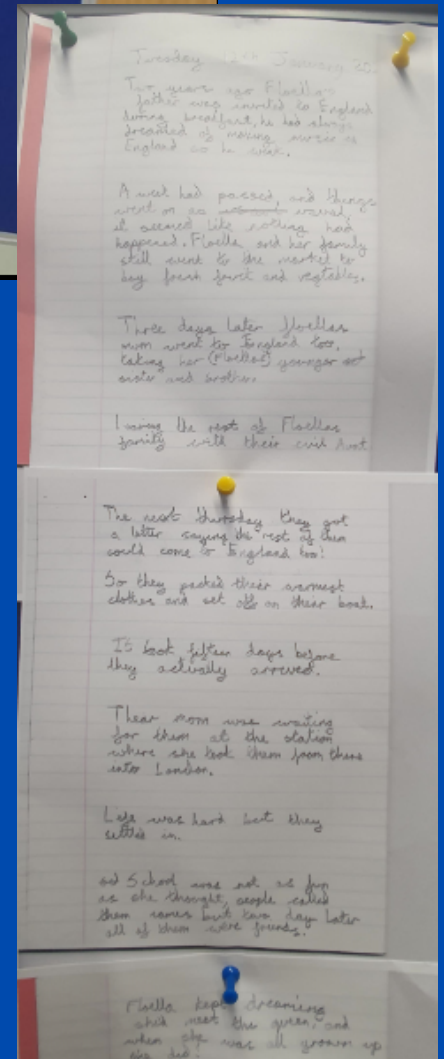 Tuesday 12th January 20.
Two years ago Floellas
father was invited to England
during breakfast, he had always
dreamted of moving
England so he went.
A week had passed, and things
went on as usual,
it seemed like nothing had
happened. Floella and her family
still went to the market to
buy fresh fruit and vegtables.
Three days later floellas
mum went to England too,
taking her (Floellas) younger
sister and brother.
the rest of Floellas
family with their evil Aunt
The next thursday they got
a letter saying the rest of them
could come to England too!
So they packed their warmest
clothes and set off on their boat.
It took fifteen days before
they actually arrived.
Thear mom was waiting
for them at the station
where she took them from there
into London.
Life was hard but they
settled in.
School was not as fun
as she thought, people called
them names but two day later
all of them were friends.
Floella kept dreaming
meet the queen, and
when she was all grown up
she did.